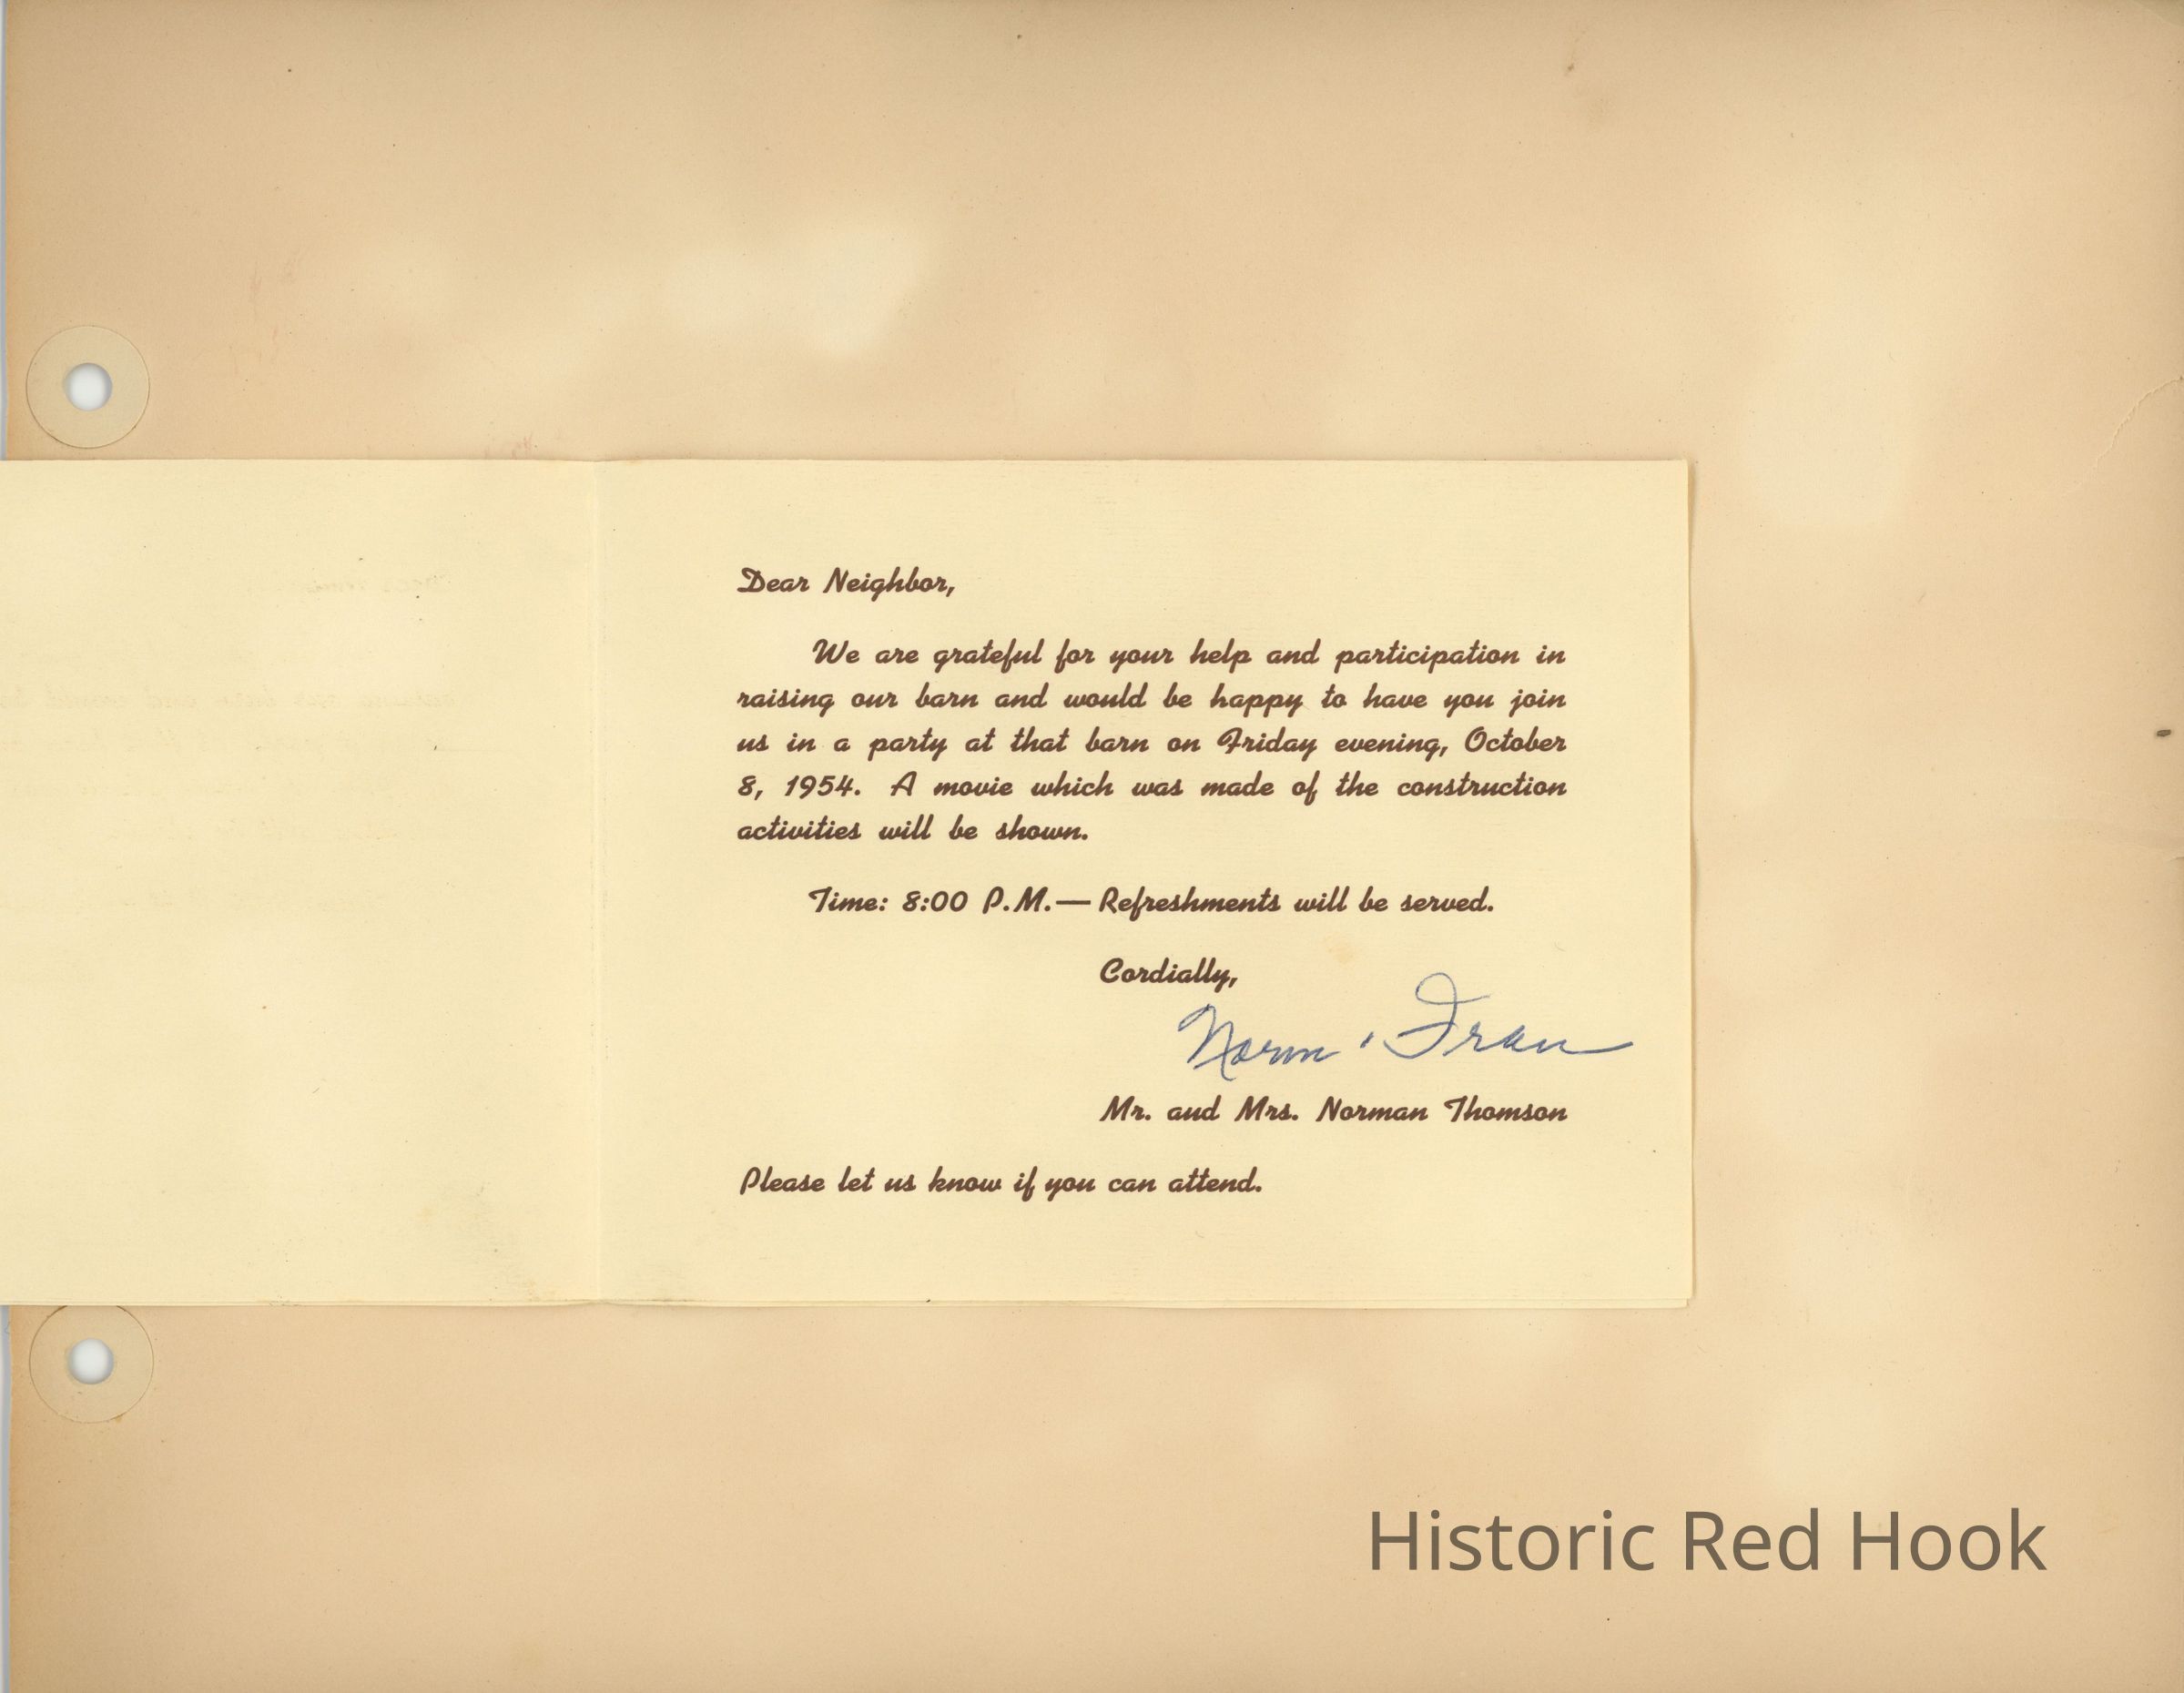 Dear Neighbor,
We are grateful for your help and participation in
raising our barn and would be happy to have you join
us in a party at that barn on Friday evening, October
8, 1954. A movie which was made of the construction
activities will be shown.
Time: 8:00 P.M.— Refreshments will be served.
Cordially,
Norm ' Fran
Mr. and Mrs. Norman Thomson
Please let us know if you can attend.
Historic Red Hook